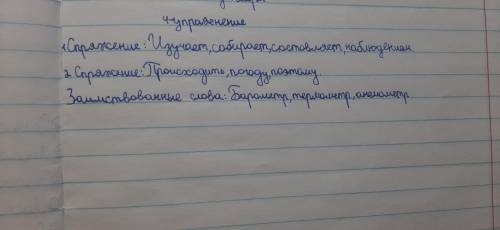 4-упражнение
1 Спряжение: Изучает, собирает, составляет, наблюдением
2 Спряжение: Происходить, погоду, поэтому.
Заимствованные слова: Барометр, термометр, анемометр